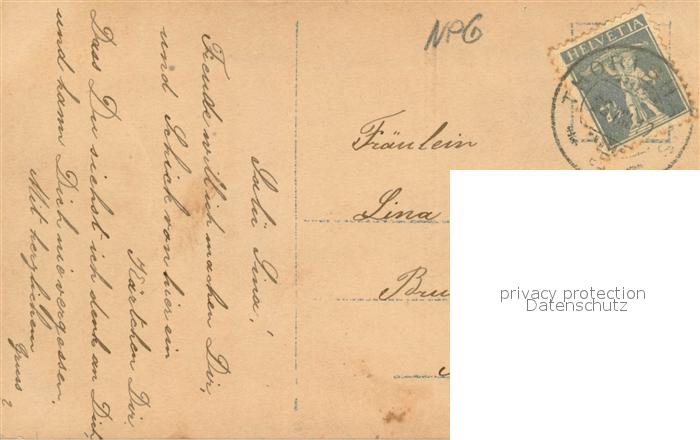 NPG
HELVETIA
Salü Lina!
Freude will ich machen Dir,
und Schick von hier ein
Kärtchen Dir.
Dass Du siehst ich denk an Dich,
und hann Dich nie vergessen.
Mit herzlichem
Gruss
Fräulein
Lina
privacy protection
Datenschutz